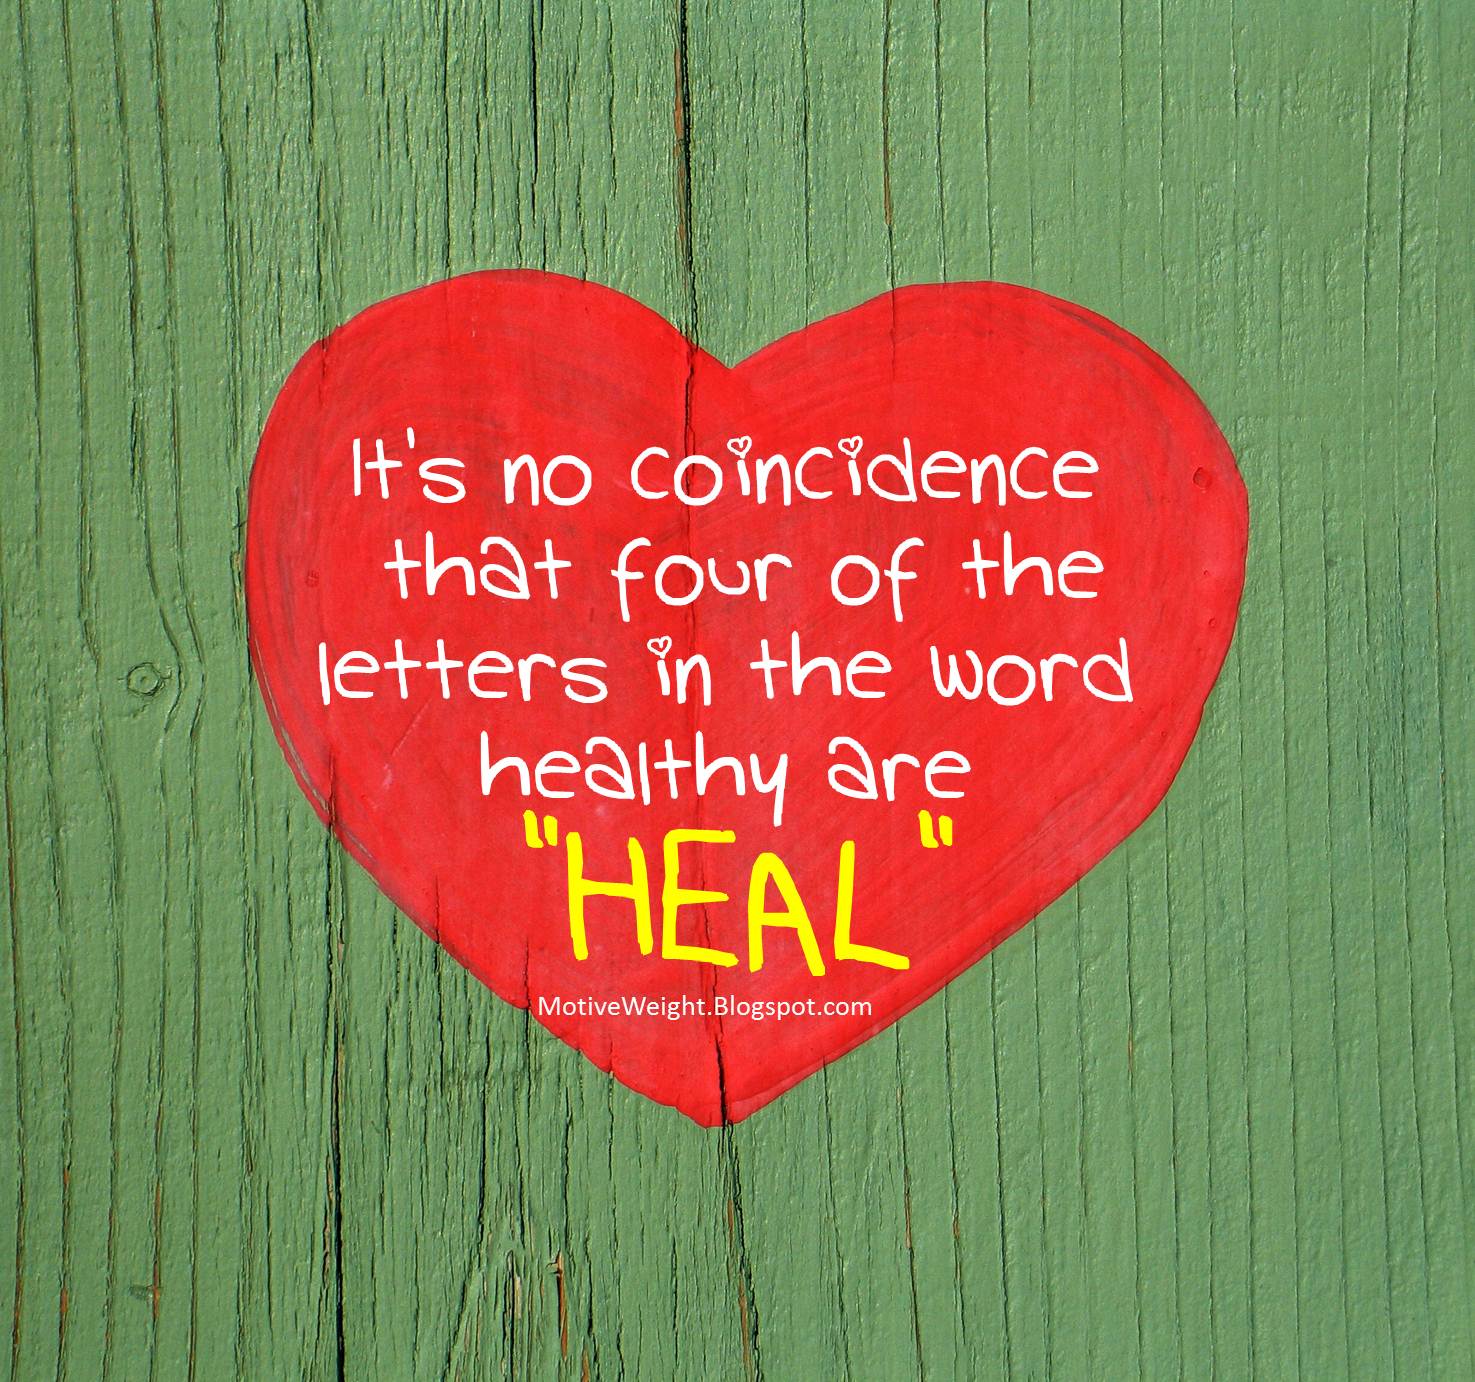 It's no coincidence
that four of the
letters in the word
healthy are
"HEAL"
MotiveWeight.Blogspot.com